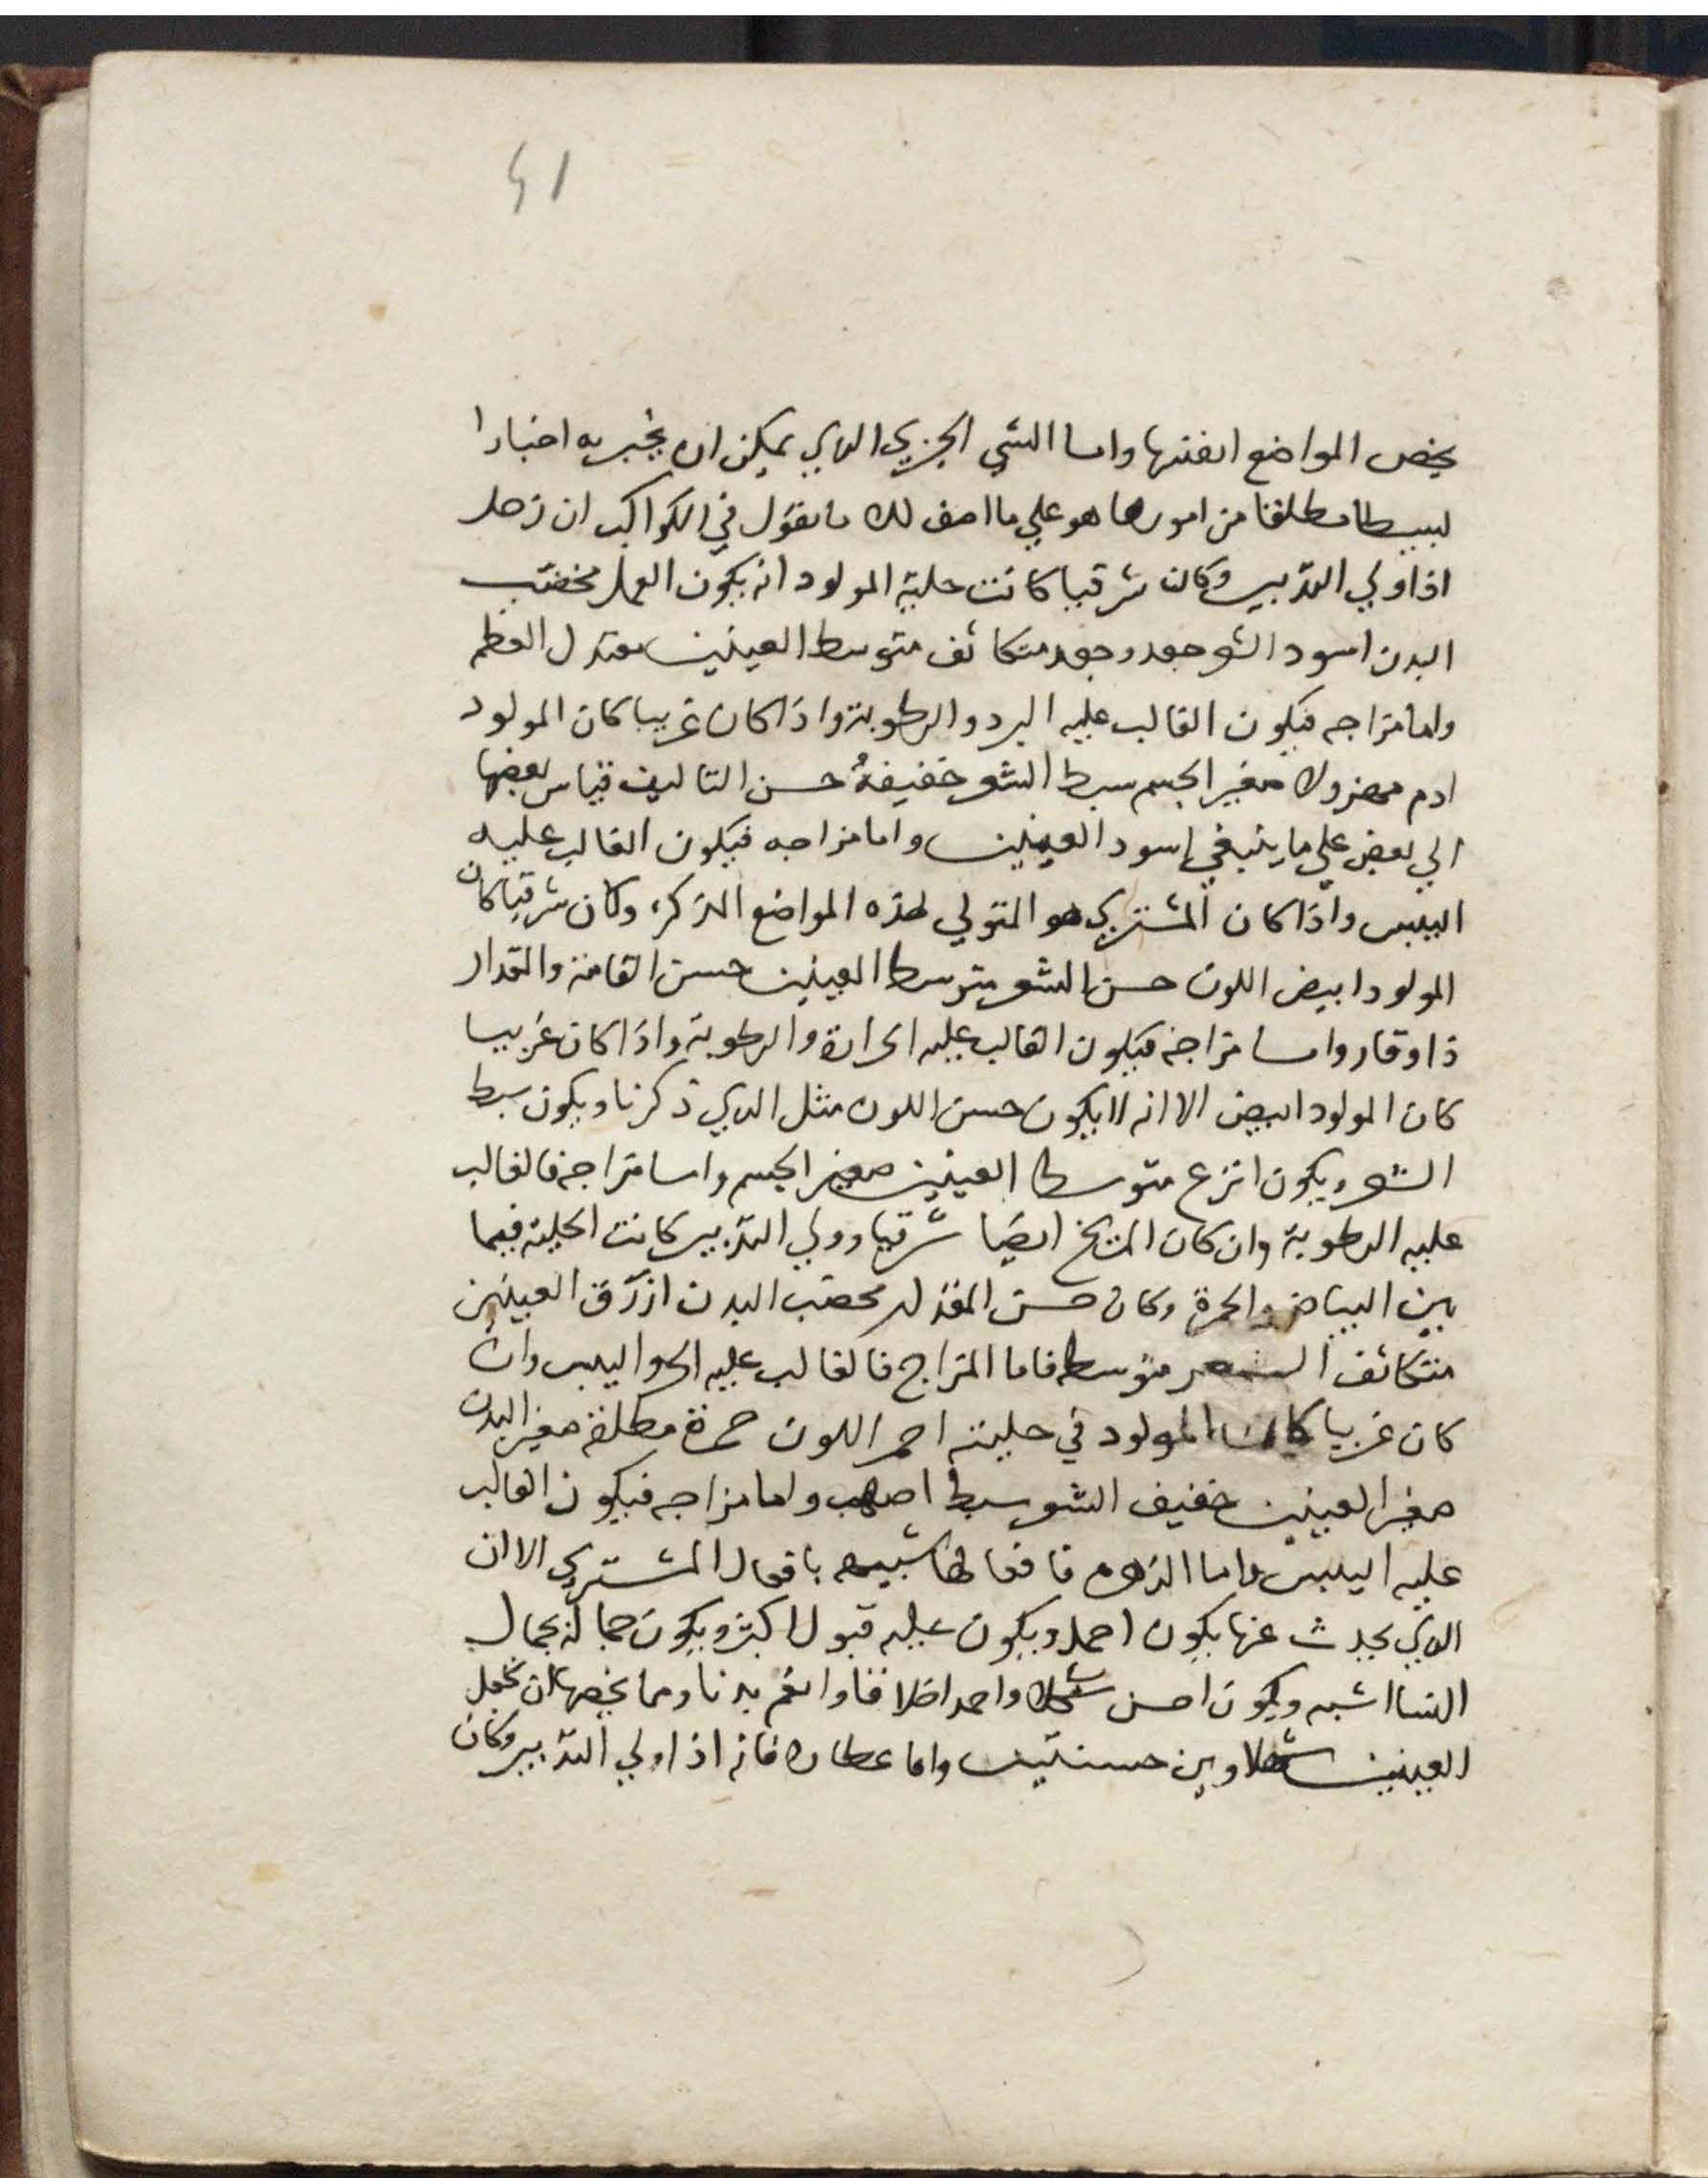 41
يخص المواضع انفسها واما الشي الجزي الدي يمكن ان يخبر به اخبارا
بسيطا مطلقا من امورها هو علي ما اصف لك ما نقول في الكواكب ان زحل
اذا ولي التدبير وكان شرقيا كانت حلية المولود انه يكون العمل مخصب
البدن اسود الشعر جعد وجعد متكاثف متوسط العينين معتدل العظم
واما مزاجه فيكون الغالب عليه البرد والرطوبة واذا كان غربيا كان المولود
ادم مهزولا صغير الجسم سبط الشعر خفيفهُ حسن التاليف قياس بعضها
الي بعض علي ما ينبغي اسود العينين واما مزاجه فيكون الغالب عليه
اليبس واذا كان المشتري هو المتولي لهذه المواضع الذكر، وكان شرقيا كان
المولود ابيض اللون حسن الشعر متوسط العينين حسن القامة والمقدار
ذا وقار واما مزاجه فيكون الغالب عليه الحرارة والرطوبة واذا كان غربيا
كان المولود ابيض الا انه لا يكون حسن اللون مثل الدي ذكرنا ويكون سبط
الشعر ويكون انزع متوسط العينين صغير الجسم واما مزاجه فالغالب
عليه الرطوبة وان كان المريخ ايضا شرقيا وولي التدبير كانت الحلية فيما
بين البياض والحمرة وكان حسن المقدار مخصب البدن ازرق العينين
متكاثف الشعر متوسطه فاما المزاج فالغالب عليه الحر واليبس وان
كان غربيا كان المولود في حليته احمر اللون حمرة مطلقة صغير البدن
صغير العينين خفيف الشعر سبط اصهب واما مزاجه فيكون الغالب
عليه اليبس واما الزهرة فافعالها شبيهه بافعال المشتري الا ان
الدي يحدث عنها يكون اجمل ويكون عليه قبول اكثر ويكون جماله بجمال
النسا اشبه ويكون احسن شكلا واحمد اخلاقا وانعم بدنا ومما يخصها ان تجعل
العينين شهلاوين حسنتين واما عطارد فانه اذا ولي التدبير وكان